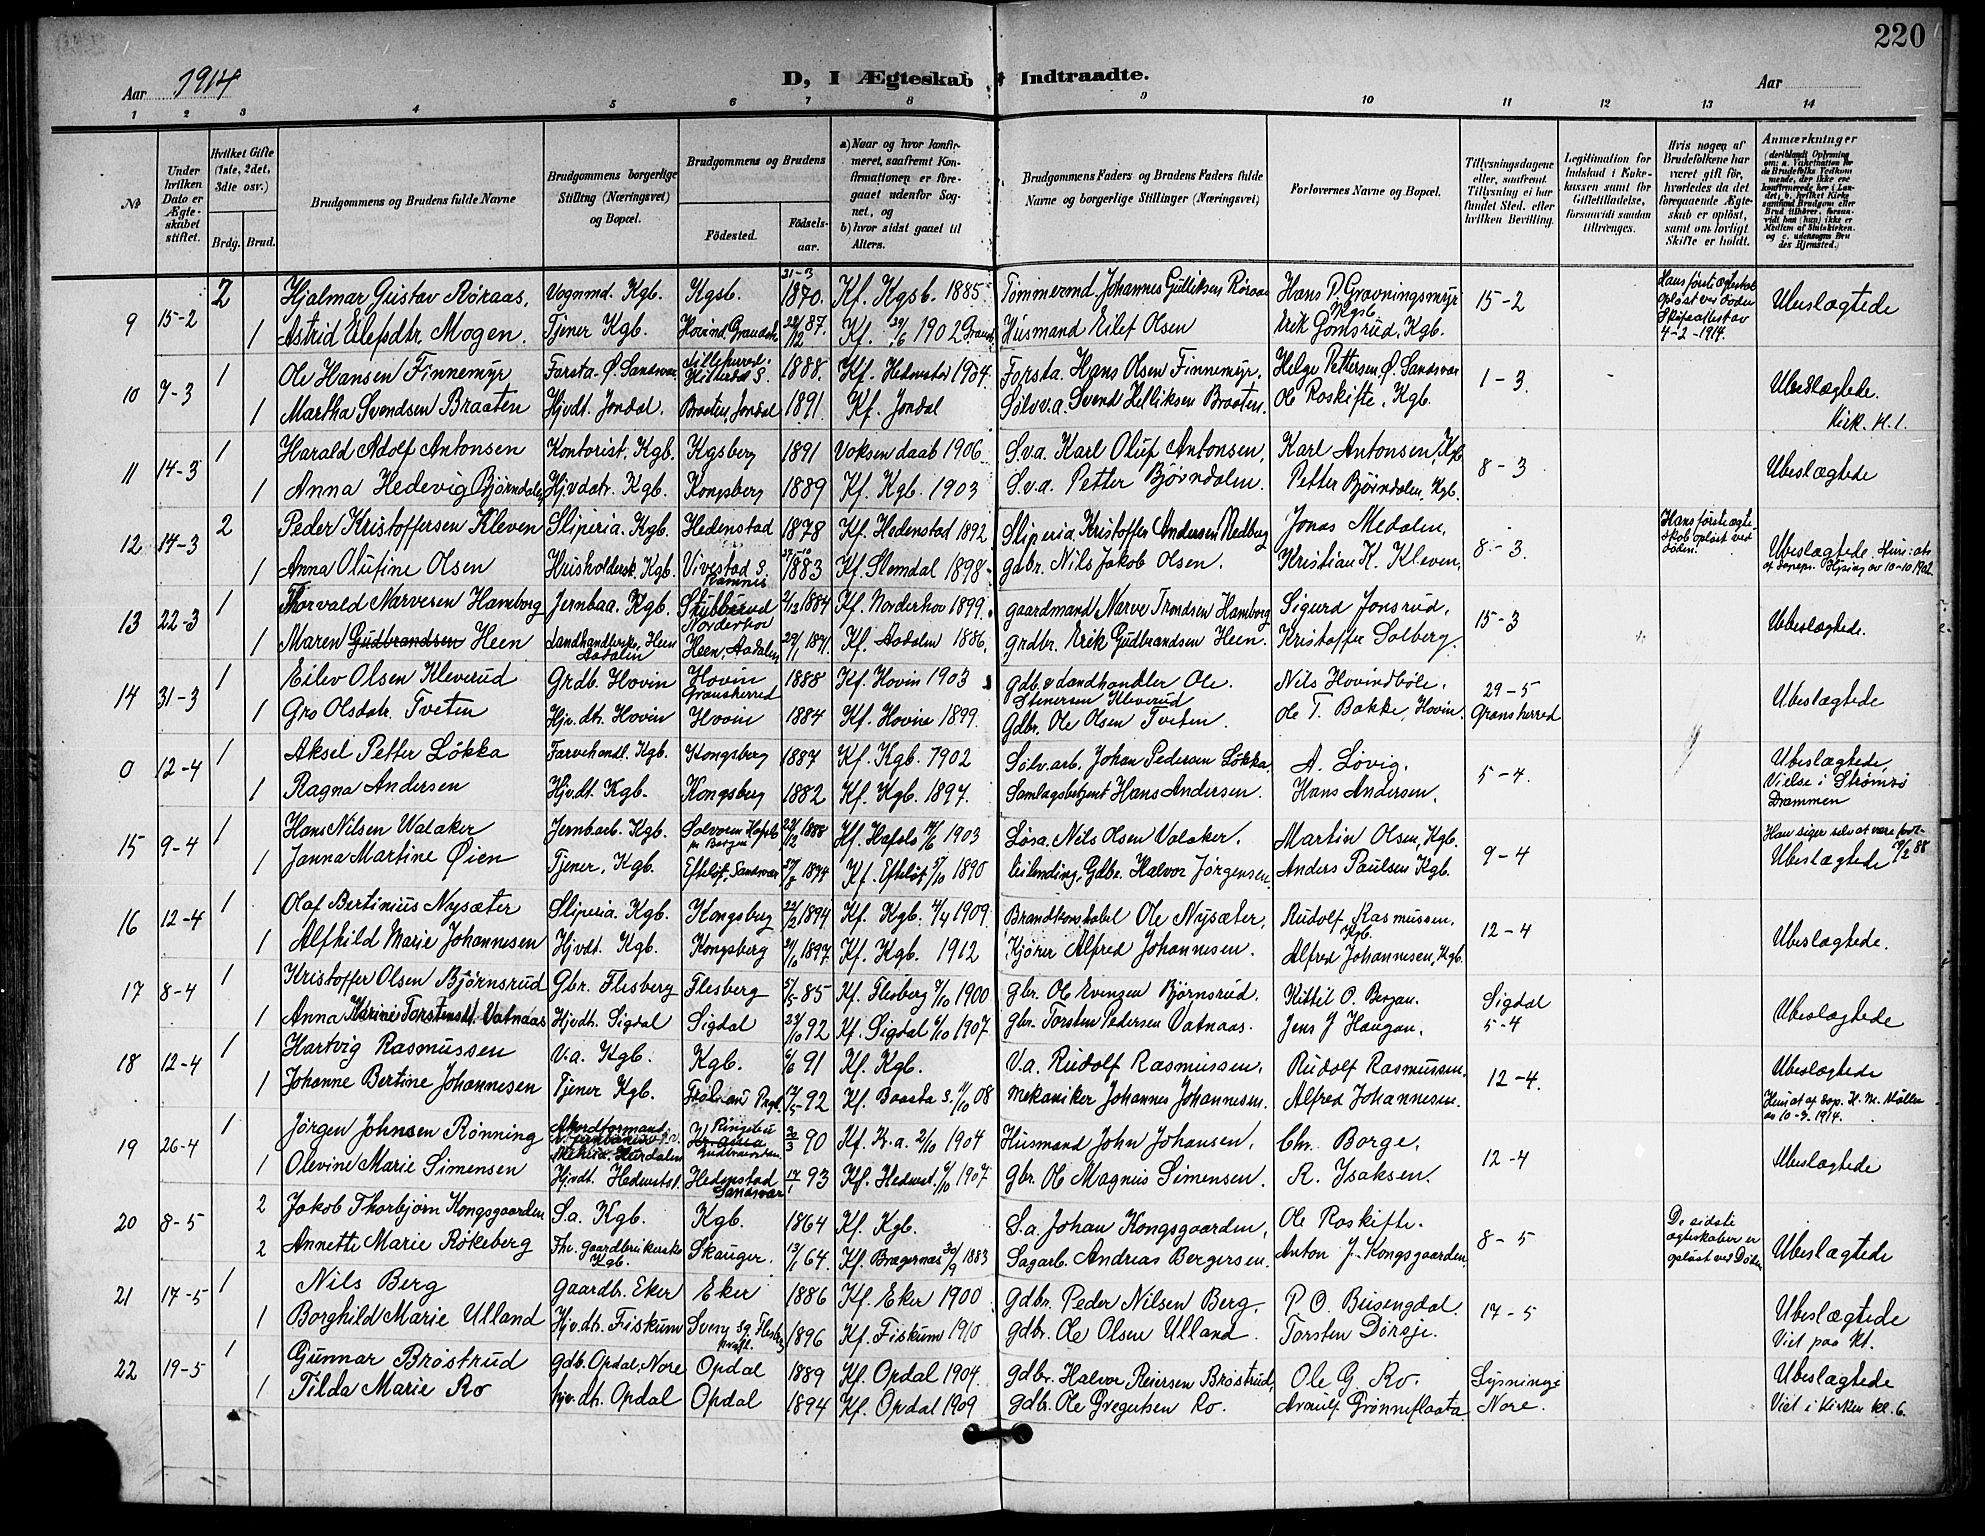 220
Aar 1914 D, I Ægteskab Indtraadte. Aar
1 2 3 4 5 6 7 8 9 10 11 12 13 14
No
Under hvilken Dato er Ægteskabet stiftet.
Hvilket Gifte (1ste, 2det, 3die osv.)
Brdg. Brud.
Brudgommens og Brudens fulde Navne
Brudgommens borgerlige Stilling (Næringsvei) og Bopæl.
Brudgommens og Brudens
Fødested. Fødselsaar.
a) Naar og hvor konfirmeret, saafremt Konfirmationen er foregaaet udenfor Sognet, og
b) hvor sidst gaaet til Alters.
Brudgommens Faders og Brudens Faders fulde Navne og borgerlige Stillinger (Næringsvei)
Forlovernes Navne og Bopæl.
Tillysningsdagene eller, saafremt Tillysning ei har fundet Sted, efter hvilken Bevilling.
Legitimation for Indskud i Enkekassen samt for Giftetilladelse, forsaavidt saadan tiltrænges.
Hvis nogen af Brudefolkene har været gift før, hvorledes da det foregaaende Ægteskab er opløst, samt om lovligt Skifte er holdt.
Anmærkninger
9 15-2 2 Hjalmar Gustav Røraas, Vognmd. Kgb. Kgsb. 21-3 1870. Kf. Kgsb. 1885 Tømmermd. Johannes Gulliksen Røraas Hans P. Gravningsmyr Kgsb. 15-2 Hans første ægteskab opløst ved døden Skifteattest av 4-2-1914. Ubeslægtede
1 Astrid Eilefsdtr. Mogen. Tjener Kgb. Hovind, Gransh. 22/12 87. Kf. 29/6 1902 Gransh. Husmand Eilef Olsen Erik Gomsrud, Kgb.
10 7-3 1 Ole Hansen Finnemyr Forsta. Ø. Sandsvær. Hitterdal S. 1888. Kf. Hedenstad 1904. Forsta. Hans Olsen Finnemyr. Helge Pettersen, Ø. Sandsvær 1-3 Ubeslægtede.
1 Martha Svendsen Braaten Hjvdt. Jondal. Braaten, Jondal 1891. Kf. Jondal Sølvv.a. Svend Helliksen Braaten. Ole Roskifte, Kgb. Kirk. Kl. 1.
11 14-3 1 Harald Adolf Antonsen Kontorist. Kgb. Kgsberg 1891 Voksen daab 1906. S.v.a. Karl Oluf Antonsen, Karl Antonsen, Kgb. 8-3 Ubeslægtede
1 Anna Hedevig Bjørndalen Hjvdatr. Kgb. Kongsberg 1889 Kf. Kgb. 1903 S.v.a. Petter Bjørndalen. Petter Bjørndalen, Kgb.
12 14-3 2 Peder Kristoffersen Kleven Sliperia. Kgb. Hedenstad 1878 Kf. Hedenstad 1892 Sliperia. Kristoffer Andersen Nedberg Jonas Medalen, 8-3. Hans første ægteskab opløst ved døden. Ubeslægtede.
1 Anna Olufine Olsen Husholdersk. Kgb. Vivestad S. Ramnes 1883 Kf. Slemdal 1898 gdbr. Nils Jakob Olsen. Kristian K. Kleven,
13 22-3 1 Thorvald Narvesen Hamborg Jernbaa. Kgb. Stubberud Norderhov 2/12 1884 Kf. Norderhov 1899. gaardmand Narve Trondsen Hamborg Sigurd Jonsrud, 15-3 Ubeslægtede.
1 Maren Gudbrandsen Heen Landhandlerske, Heen Aadalen Heen, Aadalen 29/1 1871. Kf. Aadalen 1886, grdbr. Erik Gudbrandsen Heen. Kristoffer Solberg.
14 31-3 1 Eilev Olsen Kleverud Grdb. Hovin Hovin Gransherred 1888 Kf. Hovin 1903 gdb. & Landhandler Ole Steinersen Kleverud Nils Hovindbøle. 29-5 Gransherred Ubeslægtede
1 Gro Olsdatr. Tveten Hjv. dtr. Hovin Hovin 1884 Kf. Hovin 1899. Gdbr. Ole Olsen Tveten. Ole T. Bakke, Hovin.
0 12-4 1 Aksel Petter Løkka Farvehandl. Kgb. Kongsberg 1887 Kf. Kgb. 1902 Sølv.arb. Johan Pedersen Løkka. A. Løvig. 5-4. Ubeslægtede, Vielse i Strømsø Drammen
1 Ragna Andersen Hjvdt. Kgb. Kongsberg 1882 Kf. Kgb. 1897. Samlagsbetjent Hans Andersen. Hans Andersen.
15 9-4 1 Hans Nilsen Valaker Jernbarb. Kgb. Solvorn Hafslo pr Bergen 1888 Kf. Hafslo 1903 Løsa. Nils Olsen Valaker. Martin Olsen, Kgb. 9-4 Han siger selv at være født 19/2 88 Ubeslægtede
1 Janna Martine Øien Tjener, Kgb. Efteløt, Sandsvær 1874 Kf. Efteløt 5/10 1890 Leilending, Gdbr. Halvor Jørgensen. Anders Paulsen Kgb.
16 12-4 1 Olaf Bertinius Nysæter Sliperia. Kgb. Kongsberg 1894 Kf. Kgb. 4/4 1909. Brandkonstabel Ole Nysæter, Rudolf Rasmussen. Kgb. 12-4 Ubeslægtede.
1 Alfhild Marie Johannesen Hjvdt. Kgb. Kongsberg 1897. Kf. Kgb. 1912 Kjører Alfred Johannesen. Alfred Johannesen, Kgb.
17 8-4 1 Kristoffer Olsen Bjørnsrud Gbr. Flesberg Flesberg 5/5 85 Kf. Flesberg 7/10 1900 gbr. Ole Evensen Bjørnsrud. Kittil O. Bergan. Sigdal 5-4 Ubeslægtede
1 Anna Karine Torstensdt. Vatnaas Hjvdtr. Sigdal Sigdal 92 Kf. Sigdal 6/10 1907. gbr. Torsten Pedersen Vatnaas. Jens J Haugan.
18 12-4 1 Hartvig Rasmussen V.a. Kgb. Kgb. 91 Kf. Kgb. V.a. Rudolf Rasmussen, Rudolf Rasmussen. 12-4. Ubeslægtede
1 Johanne Bertine Johannesen Tjener Kgb. 92 Kf. 11/10 08 Mekaniker Johannes Johannesen. Alfred Johannesen. 10-3. 1914.
19 26-4 1 Jørgen Johnsen Rønning Akordformand, Ringebu Gudbrandsdalen. 90 Kf. Kr.a. 2/10 1904 Husmand John Johansen, Chr. Borge, 12-4 Ubeslægtede
1 Olevine Marie Simensen Hjvdt. Hedenstad. Hedenstad Sandsvær 17/1 93 Kf. Hedenst. 6/10 1907 gbr. Ole Magnus Simensen. R. Isaksen.
20 8-5 2 Jakob Thorbjørn Kongsgaarden S.a. Kgb. Kgb. 1864 Kf. Kgb. S.a. Johan Kongsgaarden, Ole Roskifte. 8-5 De sidste ægteskaber er opløst ved Døden Ubeslægtede
2 Annette Marie Røkeberg Kgb. Skauger. 13/1 64. Kf. Bragernæs 30/9 1883 Sagarb. Andreas Bergersen. Anton J. Kongsgaarden
21 17-5 1 Nils Berg Gaardbr. Eker Eker 1886 Kf. Eker 1900 Gdbr. Peder Nilsen Berg, P. O. Busengdal. 17-5 Ubeslægtede
1 Borghild Marie Ulland Hjv.dtr. Fiskum Svene sg. Flesberg prstgl. 1896 Kf. Fiskum 1910 gdbr. Ole Olsen Ulland. Torsten Dørsje. Viet paa kt.
22 19-5 1 Gunnar Brøstrud gdb. Opdal, Nore Opdal 1889 Kf. Opdal 1904. gdbr. Halvor Reiersen Brøstrud, Ole G. Ro. Lysninge Nore. Ubeslægtede
1 Tilda Marie Ro hjv. dtr. Opdal Opdal 1894 Kf. Opdal 1909 gdbr. Ole Gregertsen Ro. Arnulf Grønneflaata Viet i Kirken kl. 6.